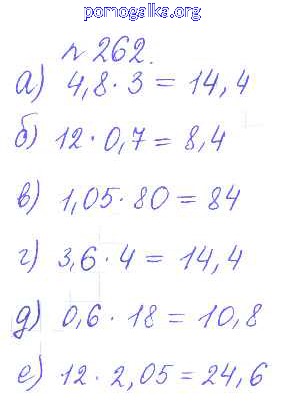 pomogalka.org
№ 262.
а) 4,8 · 3 = 14,4
б) 12 · 0,7 = 8,4
в) 1,05 · 80 = 84
г) 3,6 · 4 = 14,4
д) 0,6 · 18 = 10,8
е) 12 · 2,05 = 24,6